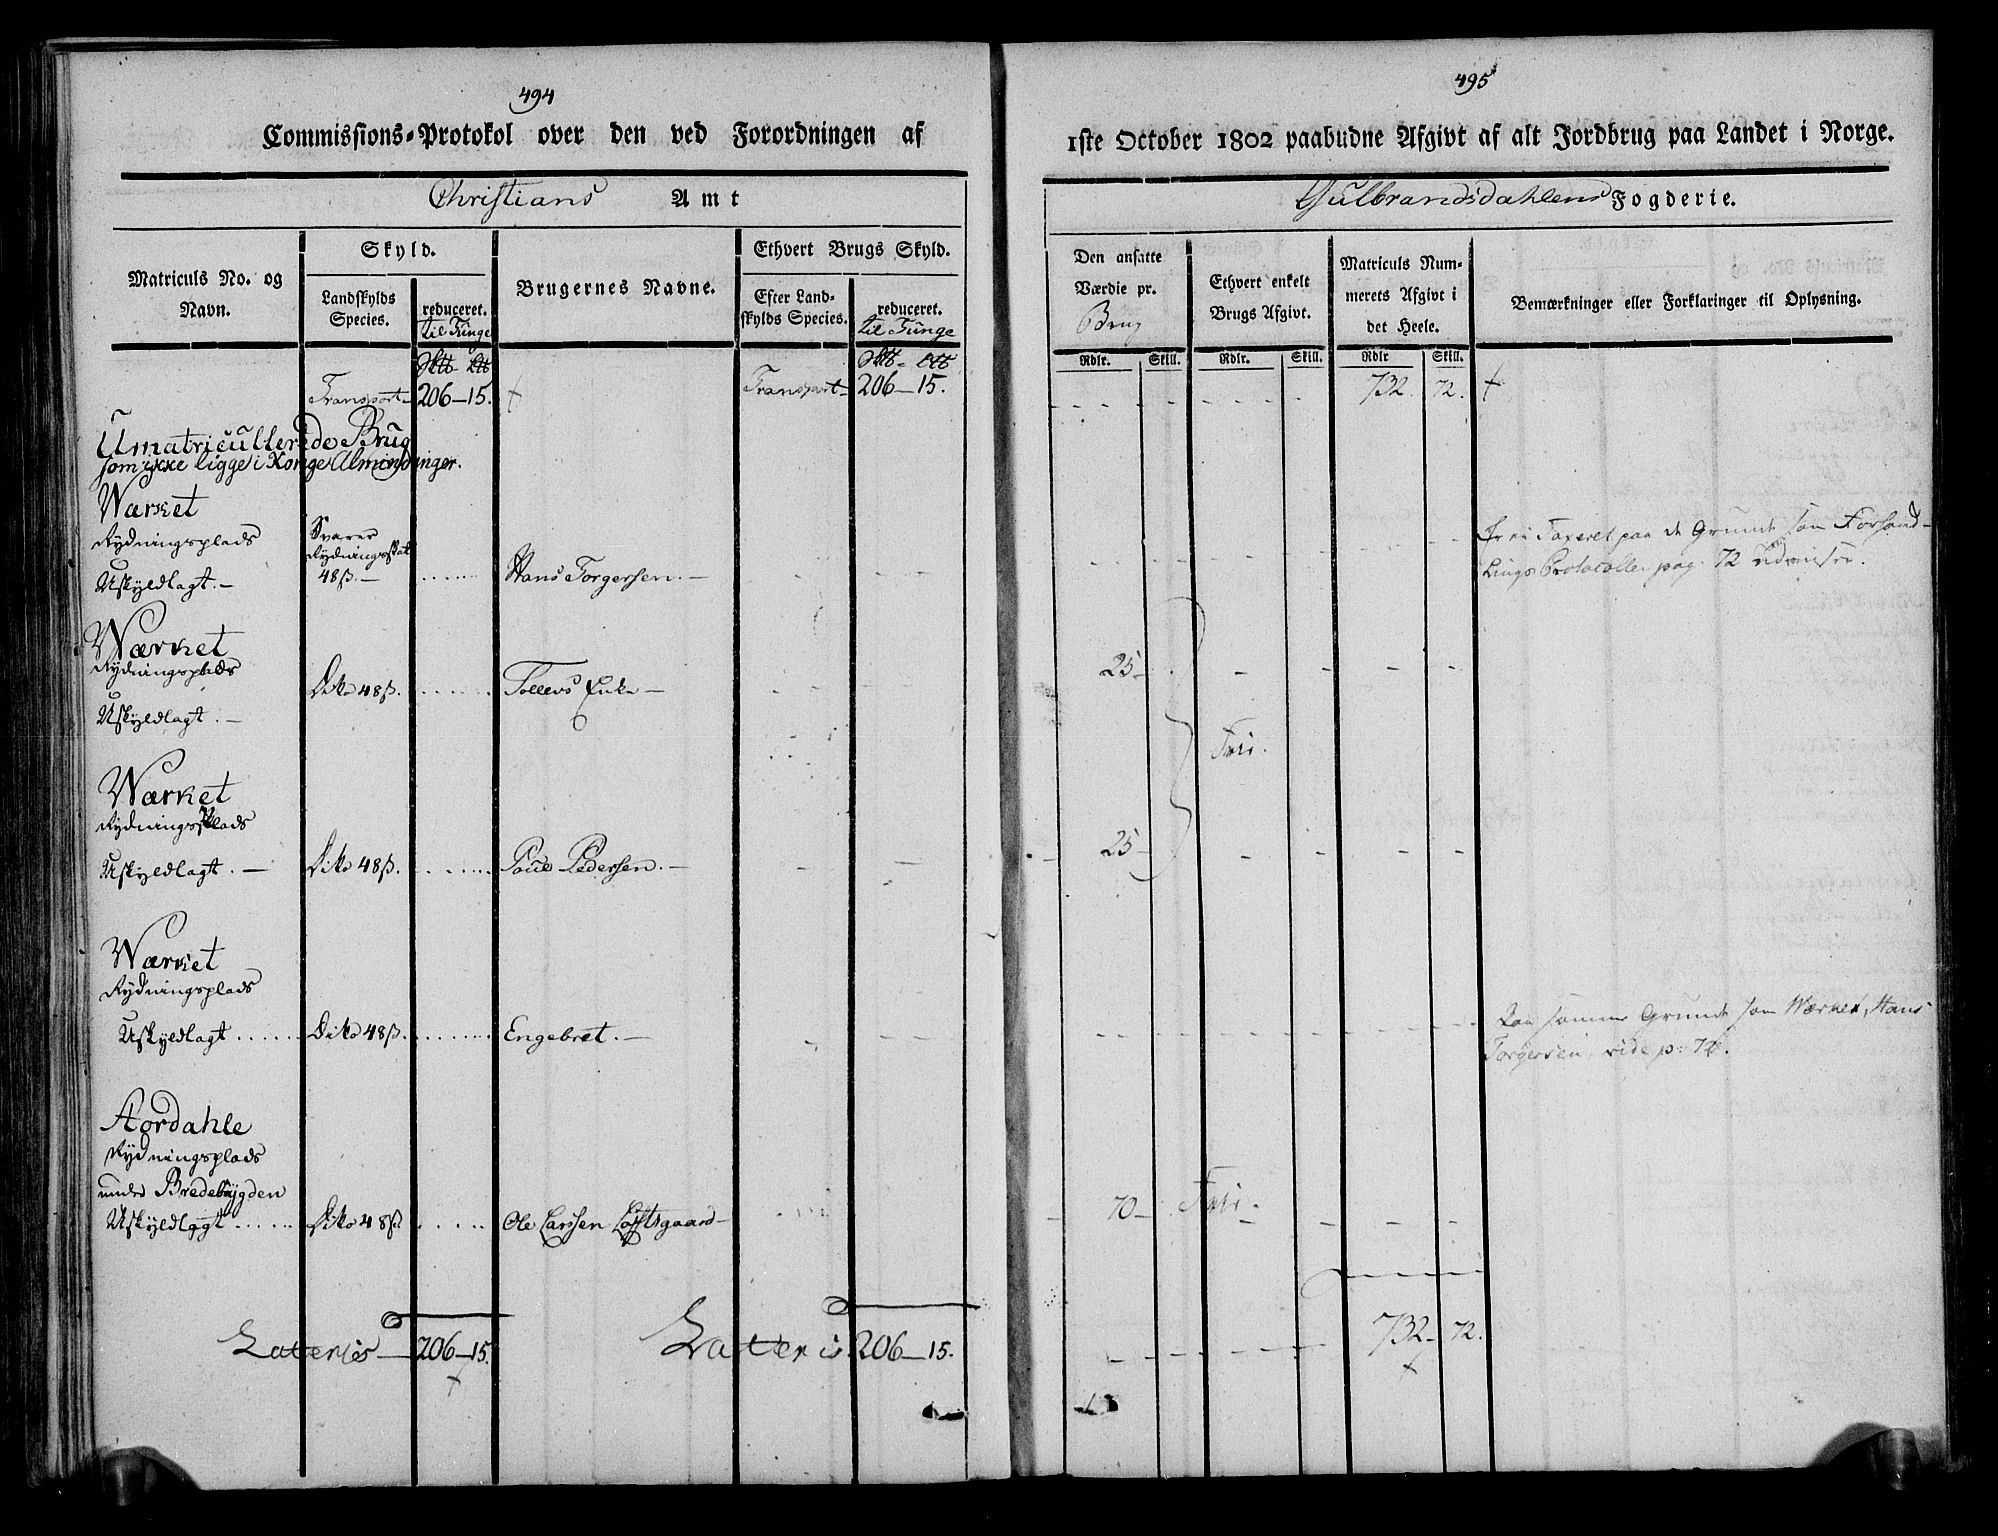 494
Commissions-Protokol over den ved Forordningen af
Christians Amt
Matriculs No. og
Navn.
Skyld.
Landskylds
Species.
reduceret.
til Tunge
Brugernes Navne.
Ethvert Brugs Skyld.
Efter Land-
skylds Species.
reduceret.
til Tunge
Transport - 206 - 15.
Transport - 206 - 15.
Umatricullerede Brug
som ikke ligge i Konge Almindinger.
Wærket
Rydningsplads
Uskyldlagt. -
Svarer
Rydningsskat
48 ß. -
Hans Torgersen. -
Wærket
Rydningsplads
Uskyldlagt. -
Dito 48 ß.
Tollevs Enke -
Wærket
Rydningsplads
Uskyldlagt. -
Dito 48 ß.
Poul Pedersen. -
Wærket
Rydningsplads
Uskyldlagt
Dito 48 ß.
Engebret. -
Aordahle
Rydningsplads
under Bredebÿgden
Uskyldlagt
Dito 48 ß
Ole Larssen Loftsgaard -
Lateris 206 - 15.
Lateris 206 - 15.
495
1ste October 1802 paabudne Afgivt af alt Jordbrug paa Landet i Norge.
Gulbrandsdahlens Fogderie.
Den ansatte
Værdie pr.
Brug
Rdlr. Skill.
Ethvert enkelt
Brugs Afgivt.
Rdlr. Skill.
Matriculs Num-
merets Afgivt i
det Heele.
Rdlr Skill.
Bemærkninger eller Forklaringer til Oplysning.
732. 72.
Er ei Taxeret paa de Grunde som Forhand-
lings Protocollen pag. 72 udviiser.
25
Frii.
25
Paa samme Grunde som Wærket, Hans
Torgersen, vide p: 72.
70 Frii.
732 - 72.